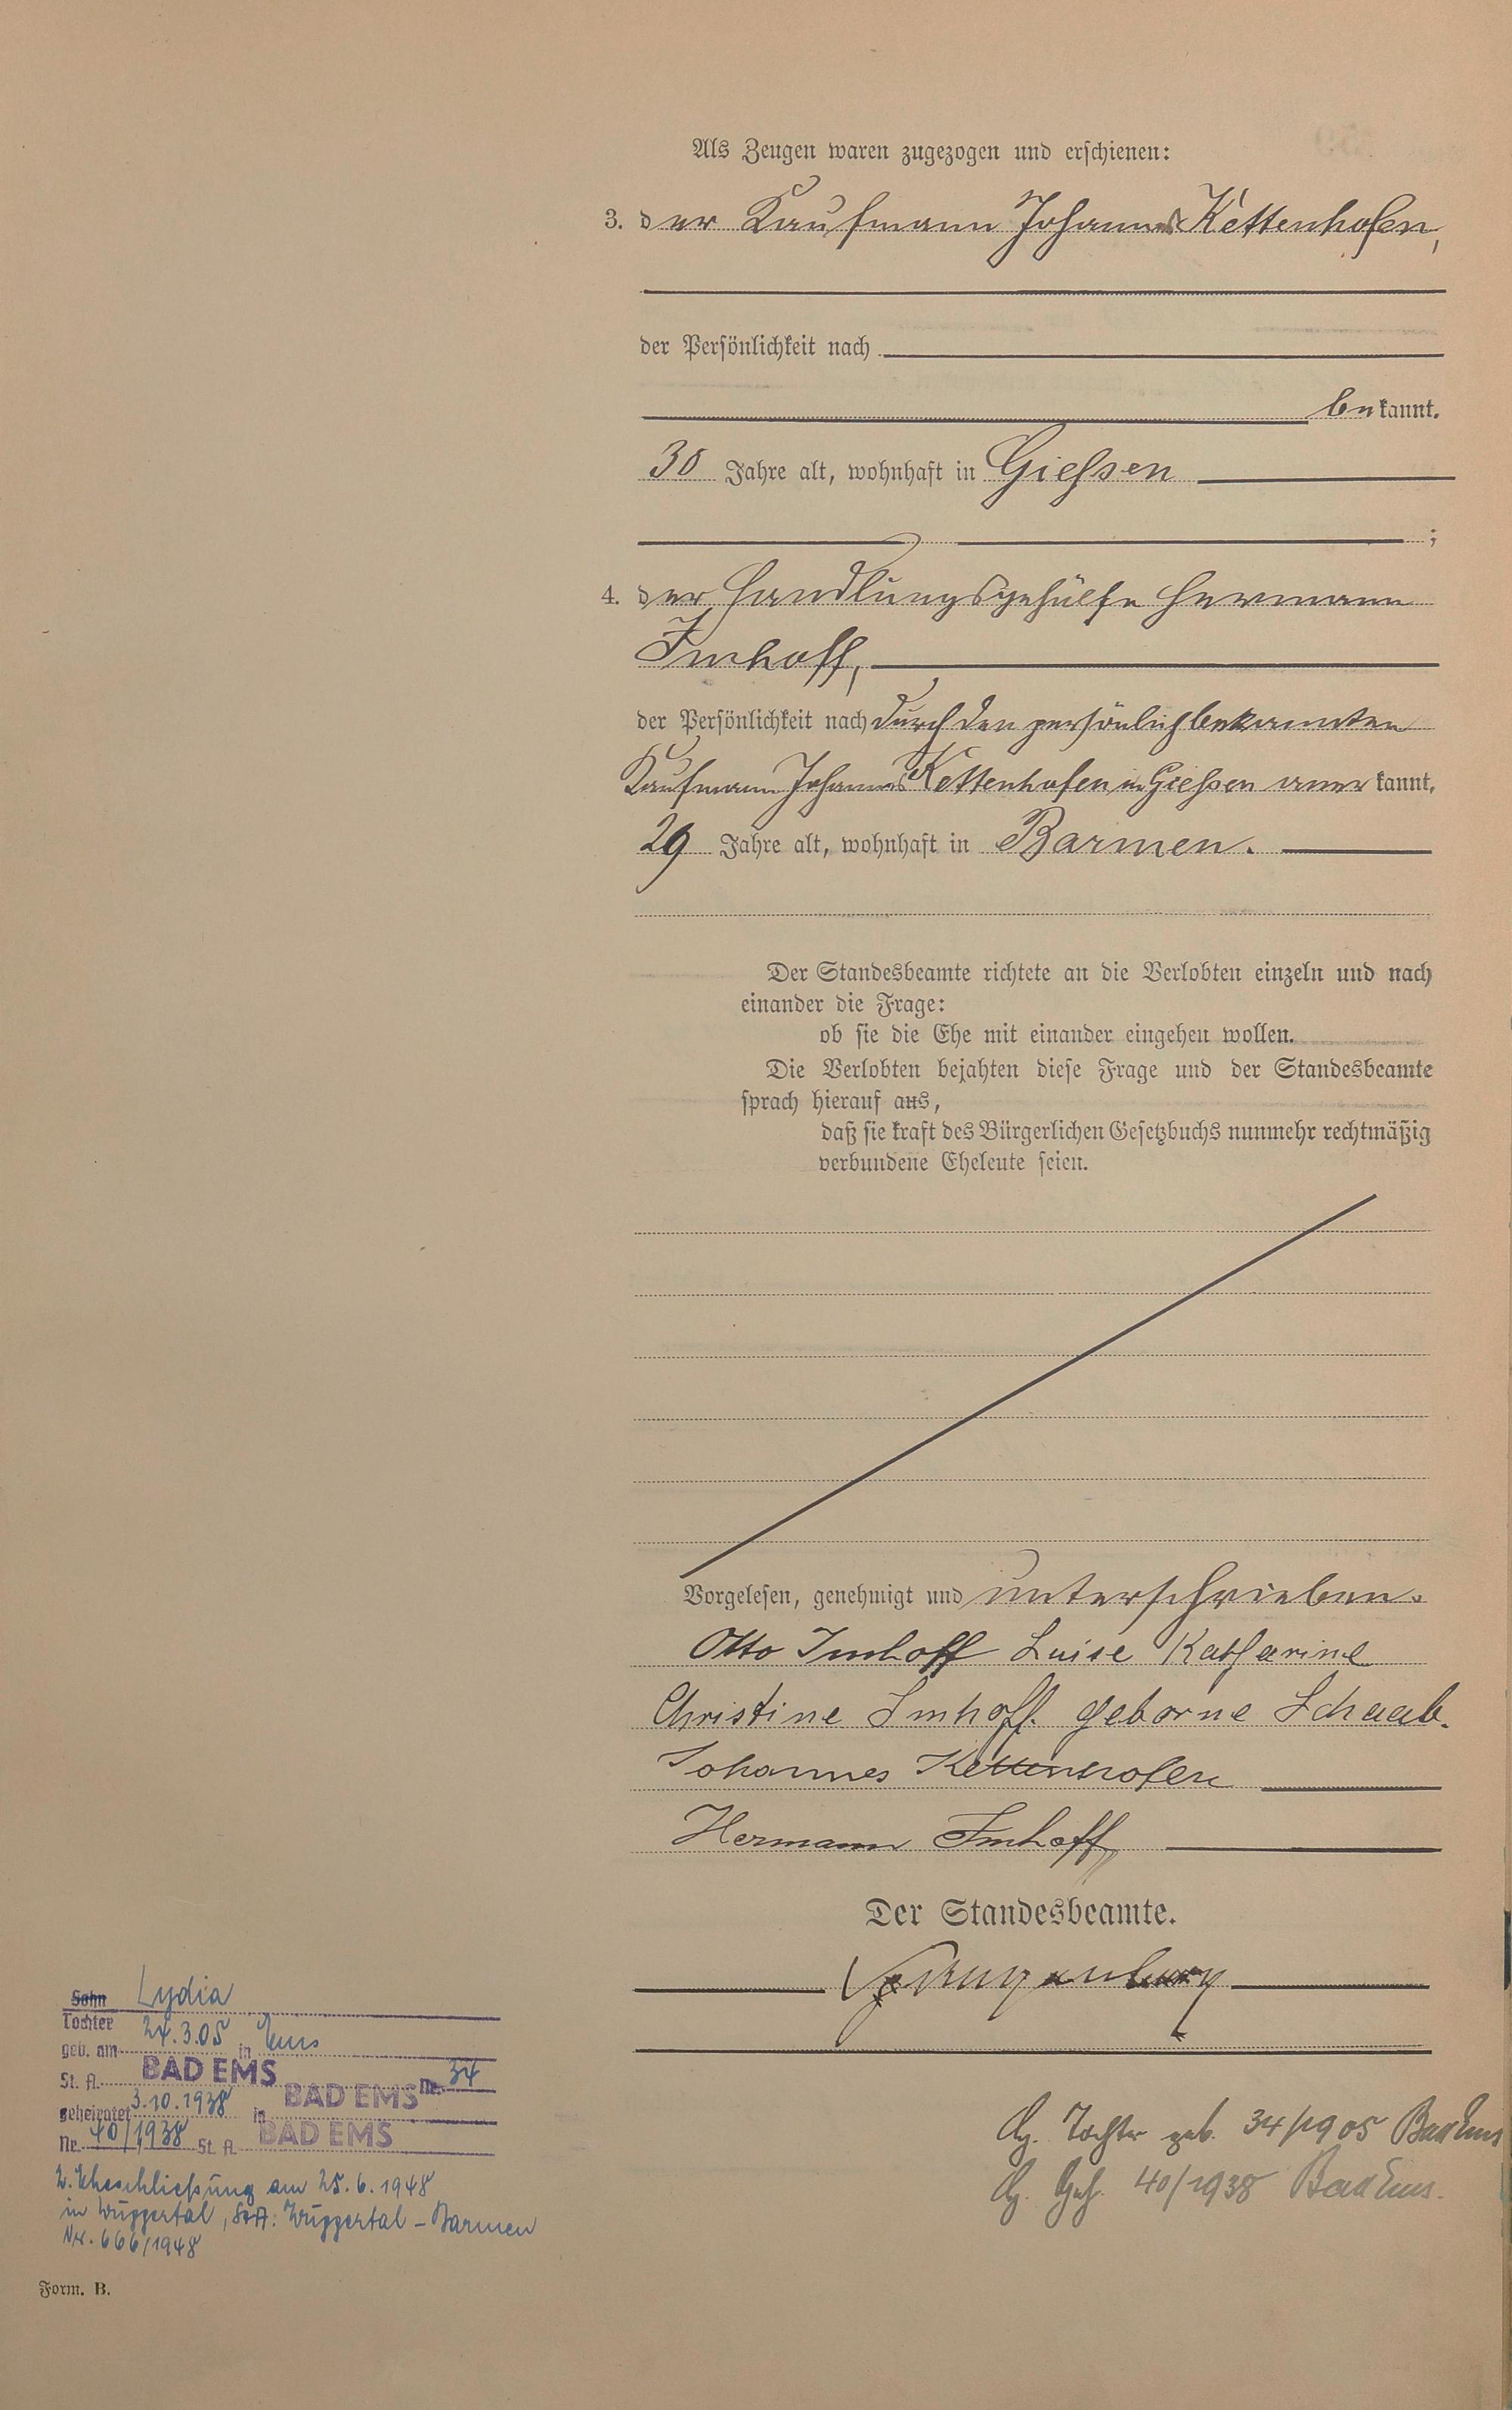 Als Zeugen waren zugezogen und erschienen:
3. der Kaufmann Johannes Kettenhofen,
der Persönlichkeit nach
be kannt.
30 Jahre alt, wohnhaft in Gießen
;
4. der Handlungsgehülfe Hermann
Imhoff,
der Persönlichkeit nach durch den persönlich bekannten
Kaufmann Johannes Kettenhofen in Gießen aner kannt,
29 Jahre alt, wohnhaft in Barmen.
Der Standesbeamte richtete an die Verlobten einzeln und nach
einander die Frage:
ob sie die Ehe mit einander eingehen wollen.
Die Verlobten bejahten diese Frage und der Standesbeamte
sprach hierauf aus,
daß sie kraft des Bürgerlichen Gesetzbuchs nunmehr rechtmäßig
verbundene Eheleute seien.
Vorgelesen, genehmigt und unterschrieben.
Otto Imhoff Luise Katharine
Christine Imhoff geborne Schaab.
Johannes Kettenhofen
Hermann Imhoff
Der Standesbeamte.
Sohn Lydia
Tochter
geb. am 24.3.05 in Ems
St. A. BAD EMS Nr. 34
geheiratet 3.10.1938 in BAD EMS
Nr. 40/1938 St. A. BAD EMS
2. Eheschließung am 25.6.1948
in Wuppertal, StA: Wuppertal-Barmen
Nr. 666/1948
Tochter geb. 34/1905 Bad Ems
40/1938 Bad Ems.
Form. B.